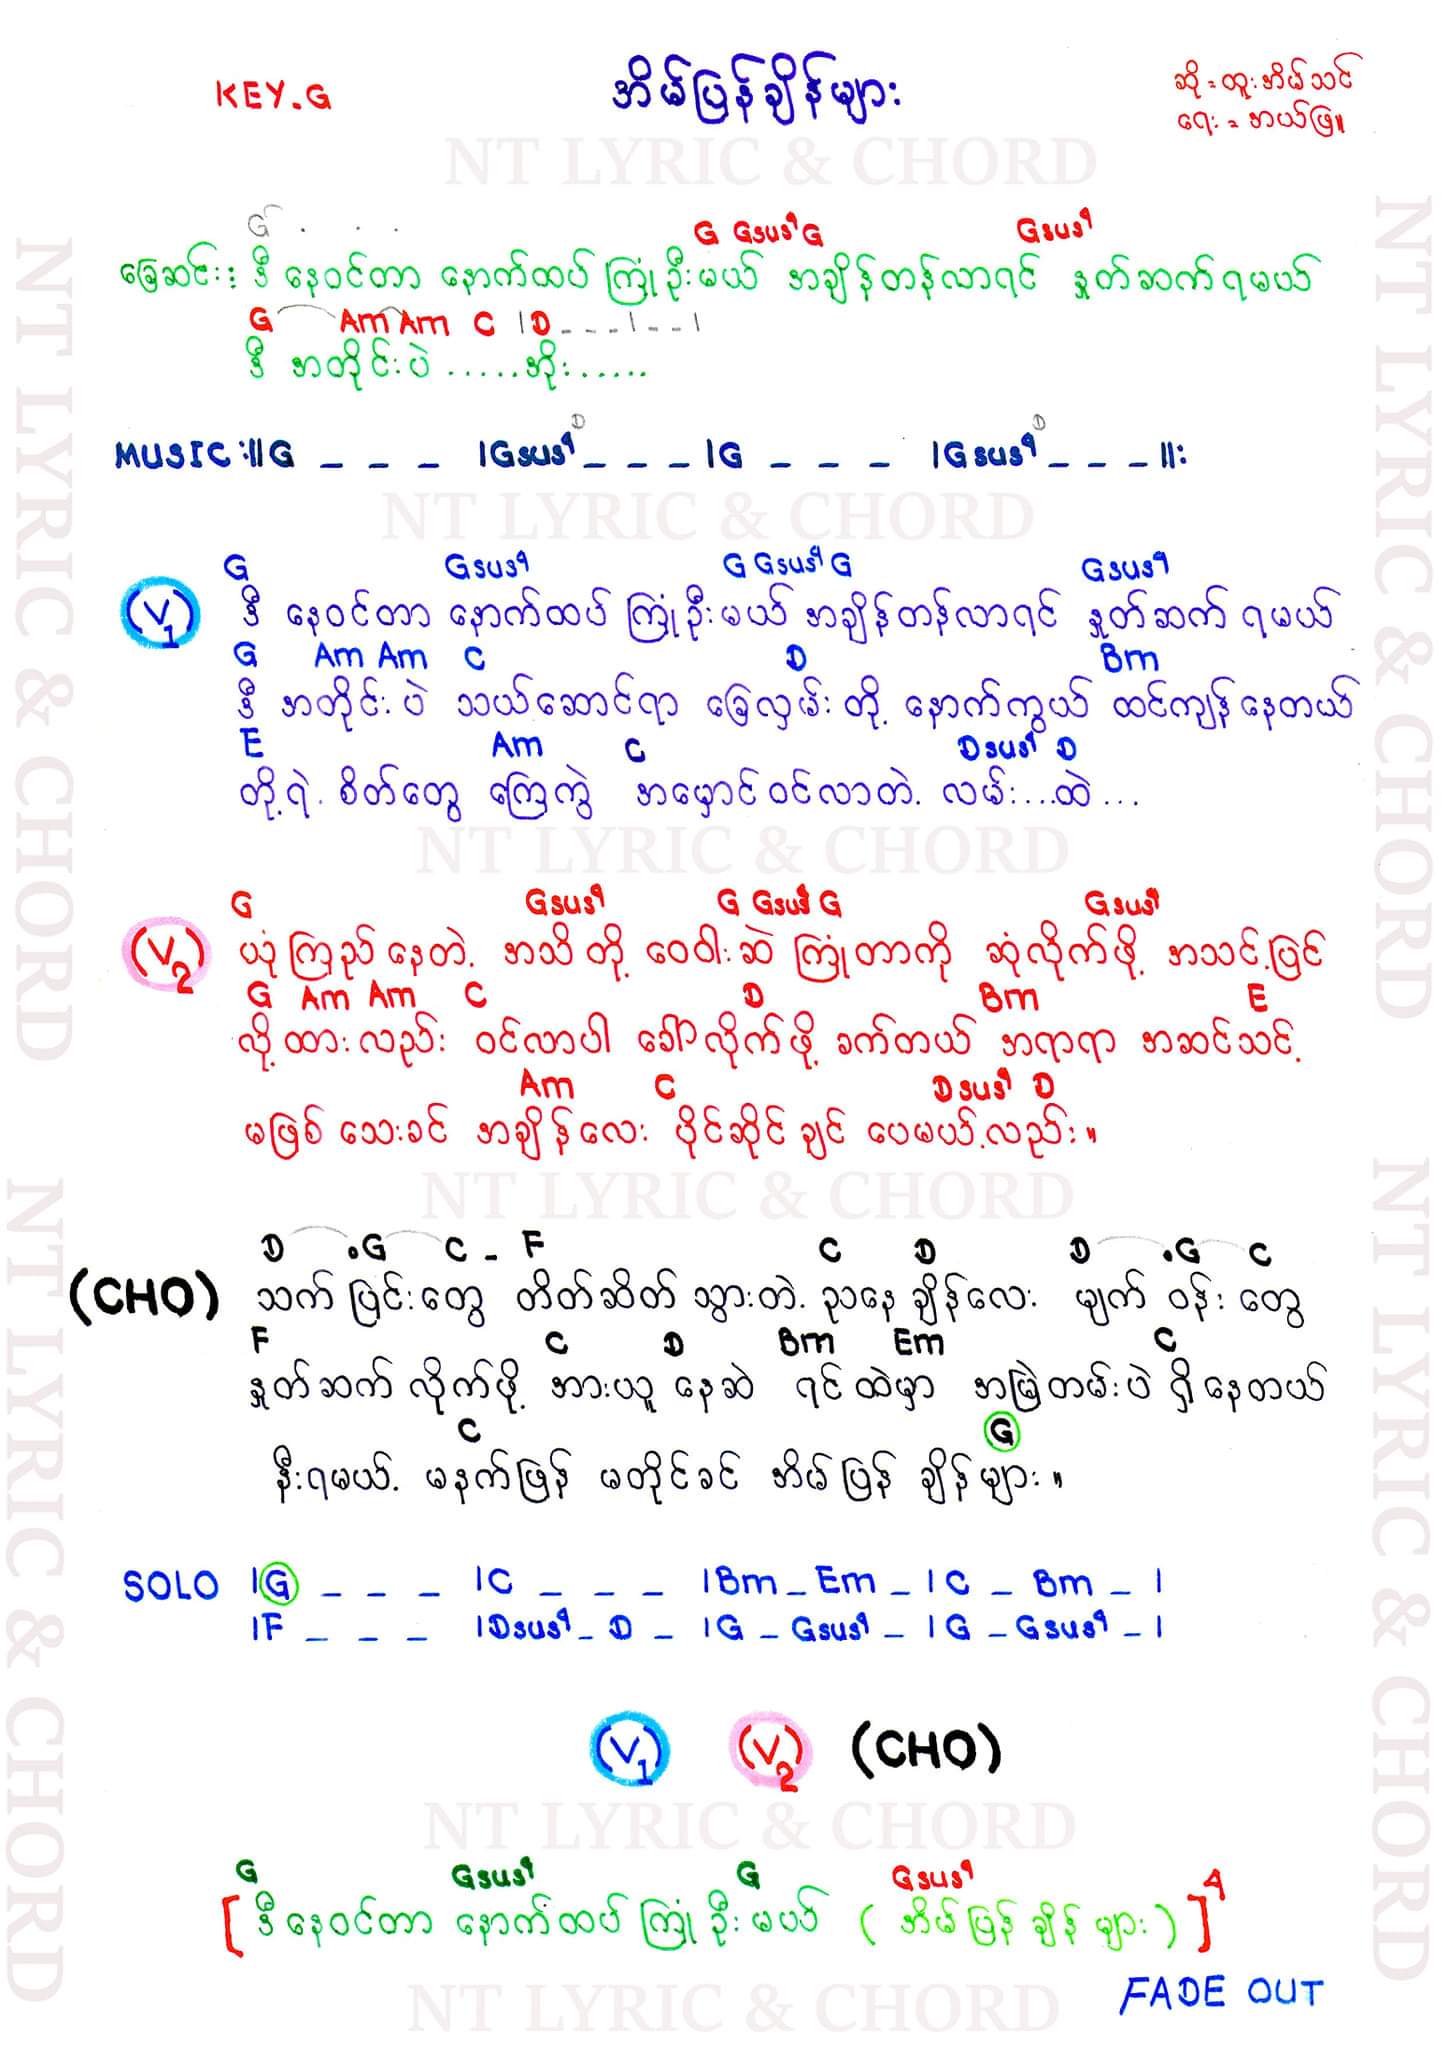 KEY.G
အိမ်ပြန်ချိန်များ
ဆို = ထူးအိမ်သင်
ရေး = အယ်ဖြူ။
NT LYRIC & CHORD
G
G Gsus4 G Gsus4
ခြေဆင်း : ဒီ နေဝင်တာ နောက်ထပ် ကြုံဦးမယ် အချိန်တန်လာရင် နှုတ်ဆက်ရမယ်
G Am Am C | D _ _ _ | _ _ |
ဒီ အတိုင်းပဲ ..... အိုး .....
D D
MUSIC :|| G _ _ _ | Gsus4 _ _ _ | G _ _ _ | Gsus4 _ _ _ ||:
NT LYRIC & CHORD
G Gsus4 G Gsus4 G Gsus4
(V1) ဒီ နေဝင်တာ နောက်ထပ် ကြုံဦးမယ် အချိန်တန်လာရင် နှုတ်ဆက် ရမယ်
G Am Am C D Bm
ဒီ အတိုင်းပဲ သယ်ဆောင်ရာ ခြေလှမ်းတို့ နောက်ကွယ် ထင်ကျန်နေတယ်
E Am C Dsus4 D
တို့ရဲ့ စိတ်တွေ ကြေကွဲ အမှောင်ဝင်လာတဲ့ လမ်း...ထဲ ...
NT LYRIC & CHORD
G Gsus4 G Gsus4 G Gsus4
(V2) ယုံကြည်နေတဲ့ အသိတို့ ဝေဝါးဆဲ ကြုံတာကို ဆုံလိုက်ဖို့ အသင့်ပြင်
G Am Am C D Bm E
လို့ ထားလည်း ဝင်လာပါ ခေါ်လိုက်ဖို့ ခက်တယ် အရာရာ အဆင်သင့်
Am C Dsus4 D
မဖြစ် သေးခင် အချိန်လေး ပိုင်ဆိုင်ချင် ပေမယ့်လည်း။
NT LYRIC & CHORD
D .G C - F C D D .G C
(CHO) သက်ပြင်းတွေ တိတ်ဆိတ် သွားတဲ့ ညနေချိန်လေး မျက် ဝန်း တွေ
F C D Bm Em C
နှုတ်ဆက်လိုက်ဖို့ အားယူ နေဆဲ ရင်ထဲမှာ အမြဲတမ်းပဲ ရှိနေတယ်
C G
နီးရမယ့် မနက်ဖြန် မတိုင်ခင် အိမ်ပြန် ချိန်များ။
SOLO | G _ _ _ | C _ _ _ | Bm _ Em _ | C _ Bm _ |
| F _ _ _ | Dsus4 _ D _ | G _ Gsus4 _ | G _ Gsus4 _ |
(V1) (V2) (CHO)
NT LYRIC & CHORD
G Gsus4 G Gsus4
[ ဒီနေဝင်တာ နောက်ထပ် ကြုံ ဦးမယ် ( အိမ်ပြန် ချိန် များ ) ]4
NT LYRIC & CHORD
FADE OUT
NT LYRIC & CHORD
NT LYRIC & CHORD
NT LYRIC & CHORD
NT LYRIC & CHORD